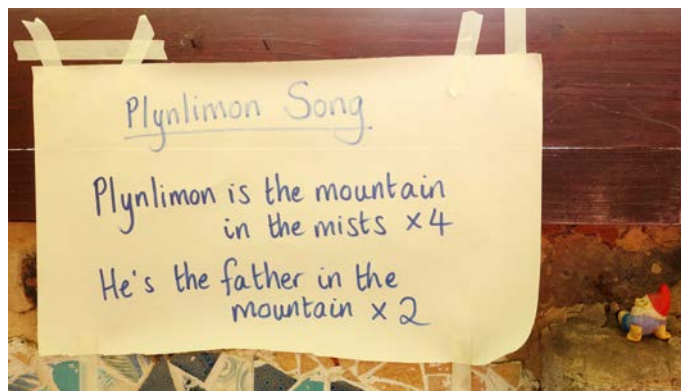 Plynlimon Song
Plynlimon is the mountain
in the mists x4
He's the father in the
mountain x 2